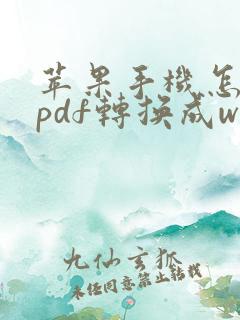 苹果手機怎
pdf轉換成w
九仙玄狐
未经同意禁止转载